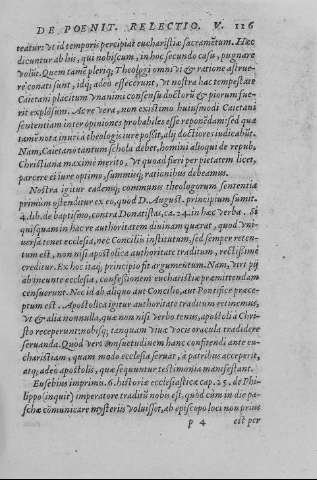 DE POENIT. RELECTIO V. 116
teatur: vt id temporis percipiat eucharistiæ sacramẽtum. Hæc
dicuntur ab his, qui nobiscum, in hoc secundo casu, pugnare
volũt. Quem tamẽ pleriq; Theologi omni vi & ratione astrue-
re conati sunt, idq; adeo effecerunt, vt nostra hac tempestate
Caietani placitum vnanimi consensu doctorũ & piorum fue-
rit explosum. Ac re vera, non existimo huiusmodi Caietani
sententiam inter opiniones probabiles esse reponẽdam: sed quã
tã menota inuri a theologis iure possit, alij doctiores iudicabũt.
Nam, Caietano tantum schola debet, homini alioqui de repub.
Christiana maxime merito. Vt quoad fieri per pietatem licet,
parcere ei iure optimo, summisq; rationibus debeamus.
Nostra igitur eademq; communis theologorum sententia
primùm ostenditur ex eo, quod D. August. principium sumit.
4. lib. de baptismo, contra Donatistas, ca. 24. in hæc verba. Si
quisquam in hac re authoritatem diuinam quærat, quod vni-
uersa tenet ecclesia, nec Concilijs institutum, sed semper reten-
tum est, non nisi apostolica authoritate traditum, rectissimè
creditur. Ex hoc itaq; principio fit argumentum. Nam, viri pij
ab ineunte ecclesia, confessionem eucharistiæ præmittendam
censuerunt. Nec id ab aliquo aut Concilio, aut Pontifice præce-
ptum est. Apostolica igitur authoritate traditum existimemus,
vt & alia nonnulla, quæ non nisi verbo tenus, apostoli a Chri-
sto receperunt: nobisq; tanquam viuæ vocis oracula tradidere
seruanda. Quod verò consuetudinem hanc confitendi ante eu-
charistiam, quam modo ecclesia seruat, à patribus acceperit,
atq; adeo apostolis, quæ sequuntur testimonia manifestant.
Eusebius in primis. 6. historiæ ecclesiasticæ cap. 25. de Phi-
lippo (inquit) imperatore traditũ nobis est, quòd cùm in die pa-
schæ cõmunicare mysterijs voluisset, ab episcopo loci non prius
p 4 est per